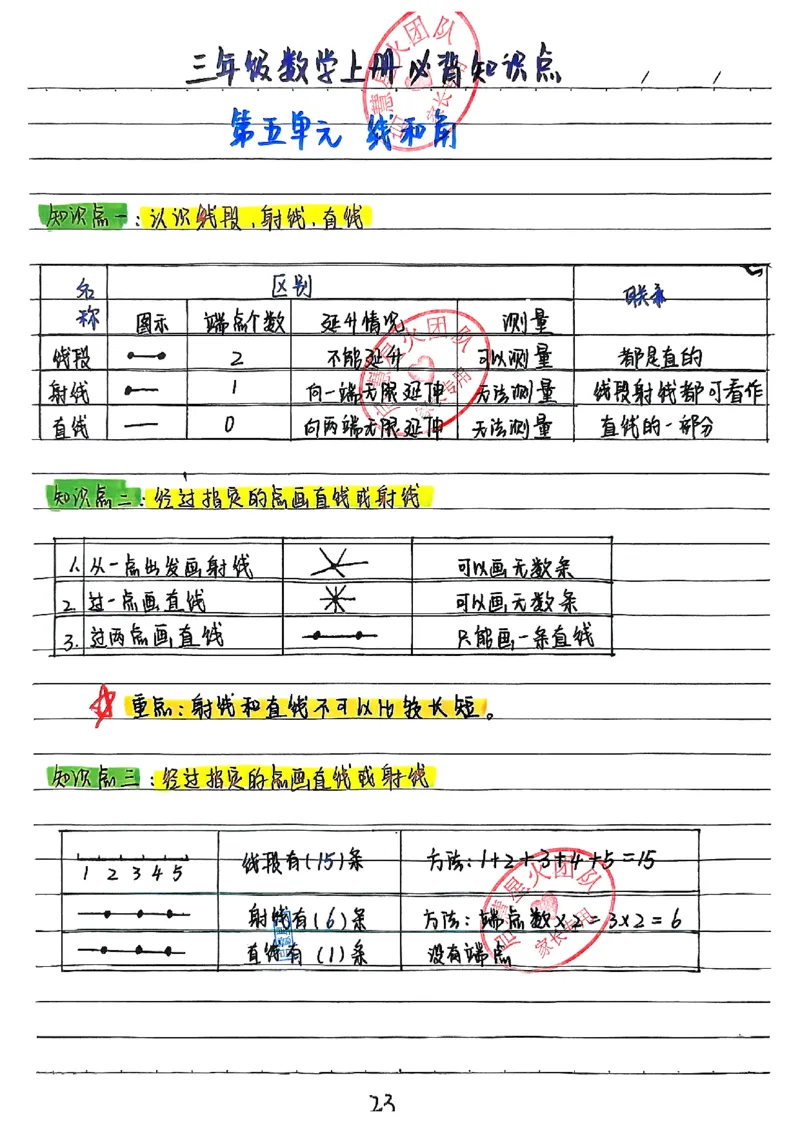 三年级数学上册必背知识点
第五单元 线和角
知识点一：认识线段、射线、直线
名称 区别 联系
图示 端点个数 延升情况 测量
线段 2 不能延升 可以测量 都是直的
射线 1 向一端无限延伸 无法测量 线段射线都可看作
直线 0 向两端无限延伸 无法测量 直线的一部分
知识点二：经过指定的点画直线或射线
1. 从一点出发画射线 可以画无数条
2. 过一点画直线 可以画无数条
3. 过两点画直线 只能画一条直线
重点：射线和直线不可以比较长短。
知识点三：经过指定的点画直线或射线
1 2 3 4 5 线段有(15)条 方法：1+2+3+4+5=15
射线有(6)条 方法：端点数×2=3×2=6
直线有(1)条 没有端点
23
星火团队
家长专用